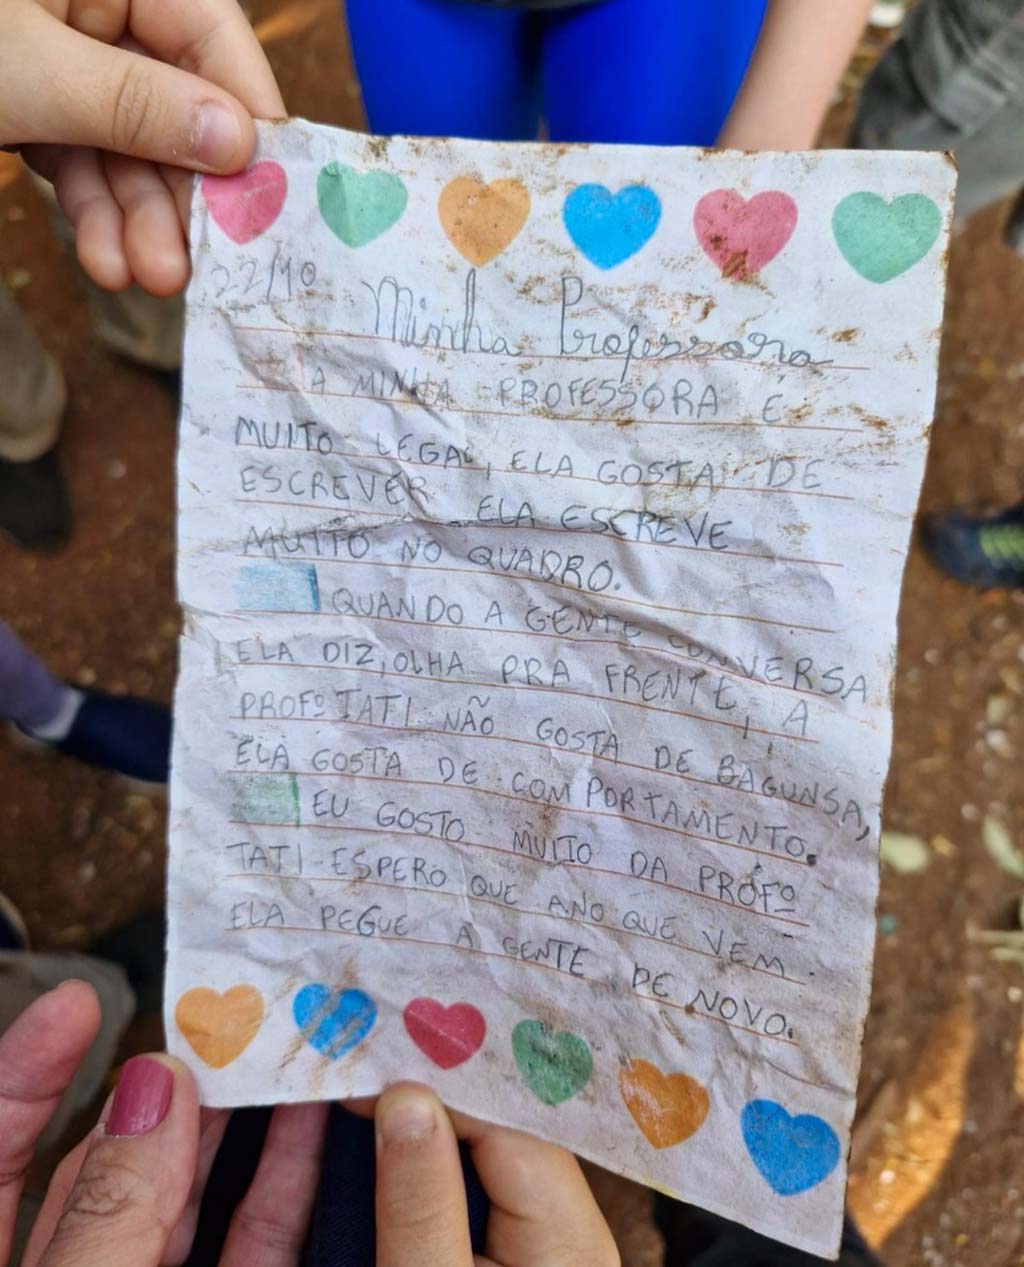 22/10
Minha Professora
A MINHA PROFESSORA É
MUITO LEGAL, ELA GOSTA DE
ESCREVER ELA ESCREVE
MUITO NO QUADRO.
QUANDO A GENTE CONVERSA
ELA DIZ, OLHA PRA FRENTE, A
PROFº TATI NÃO GOSTA DE BAGUNSA,
ELA GOSTA DE COMPORTAMENTO.
EU GOSTO MUITO DA PROFº
TATI ESPERO QUE ANO QUE VEM
ELA PEGUE A GENTE DE NOVO.